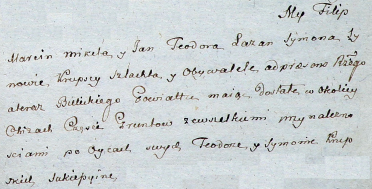 My Filip
Marcin Mikita, y Jan Teodora Łazarz Symona, Sy
nowie, Krupscy Szlachta, y Obywatele, ad præsens
ateraz Powiatu maiąc, Dostałe, w Okolicy
Część Gruntow zewszelkimi przynalezno
sciami po Oycach swych, Teodorze, y Symonie Krup
skich Sukcepyine,